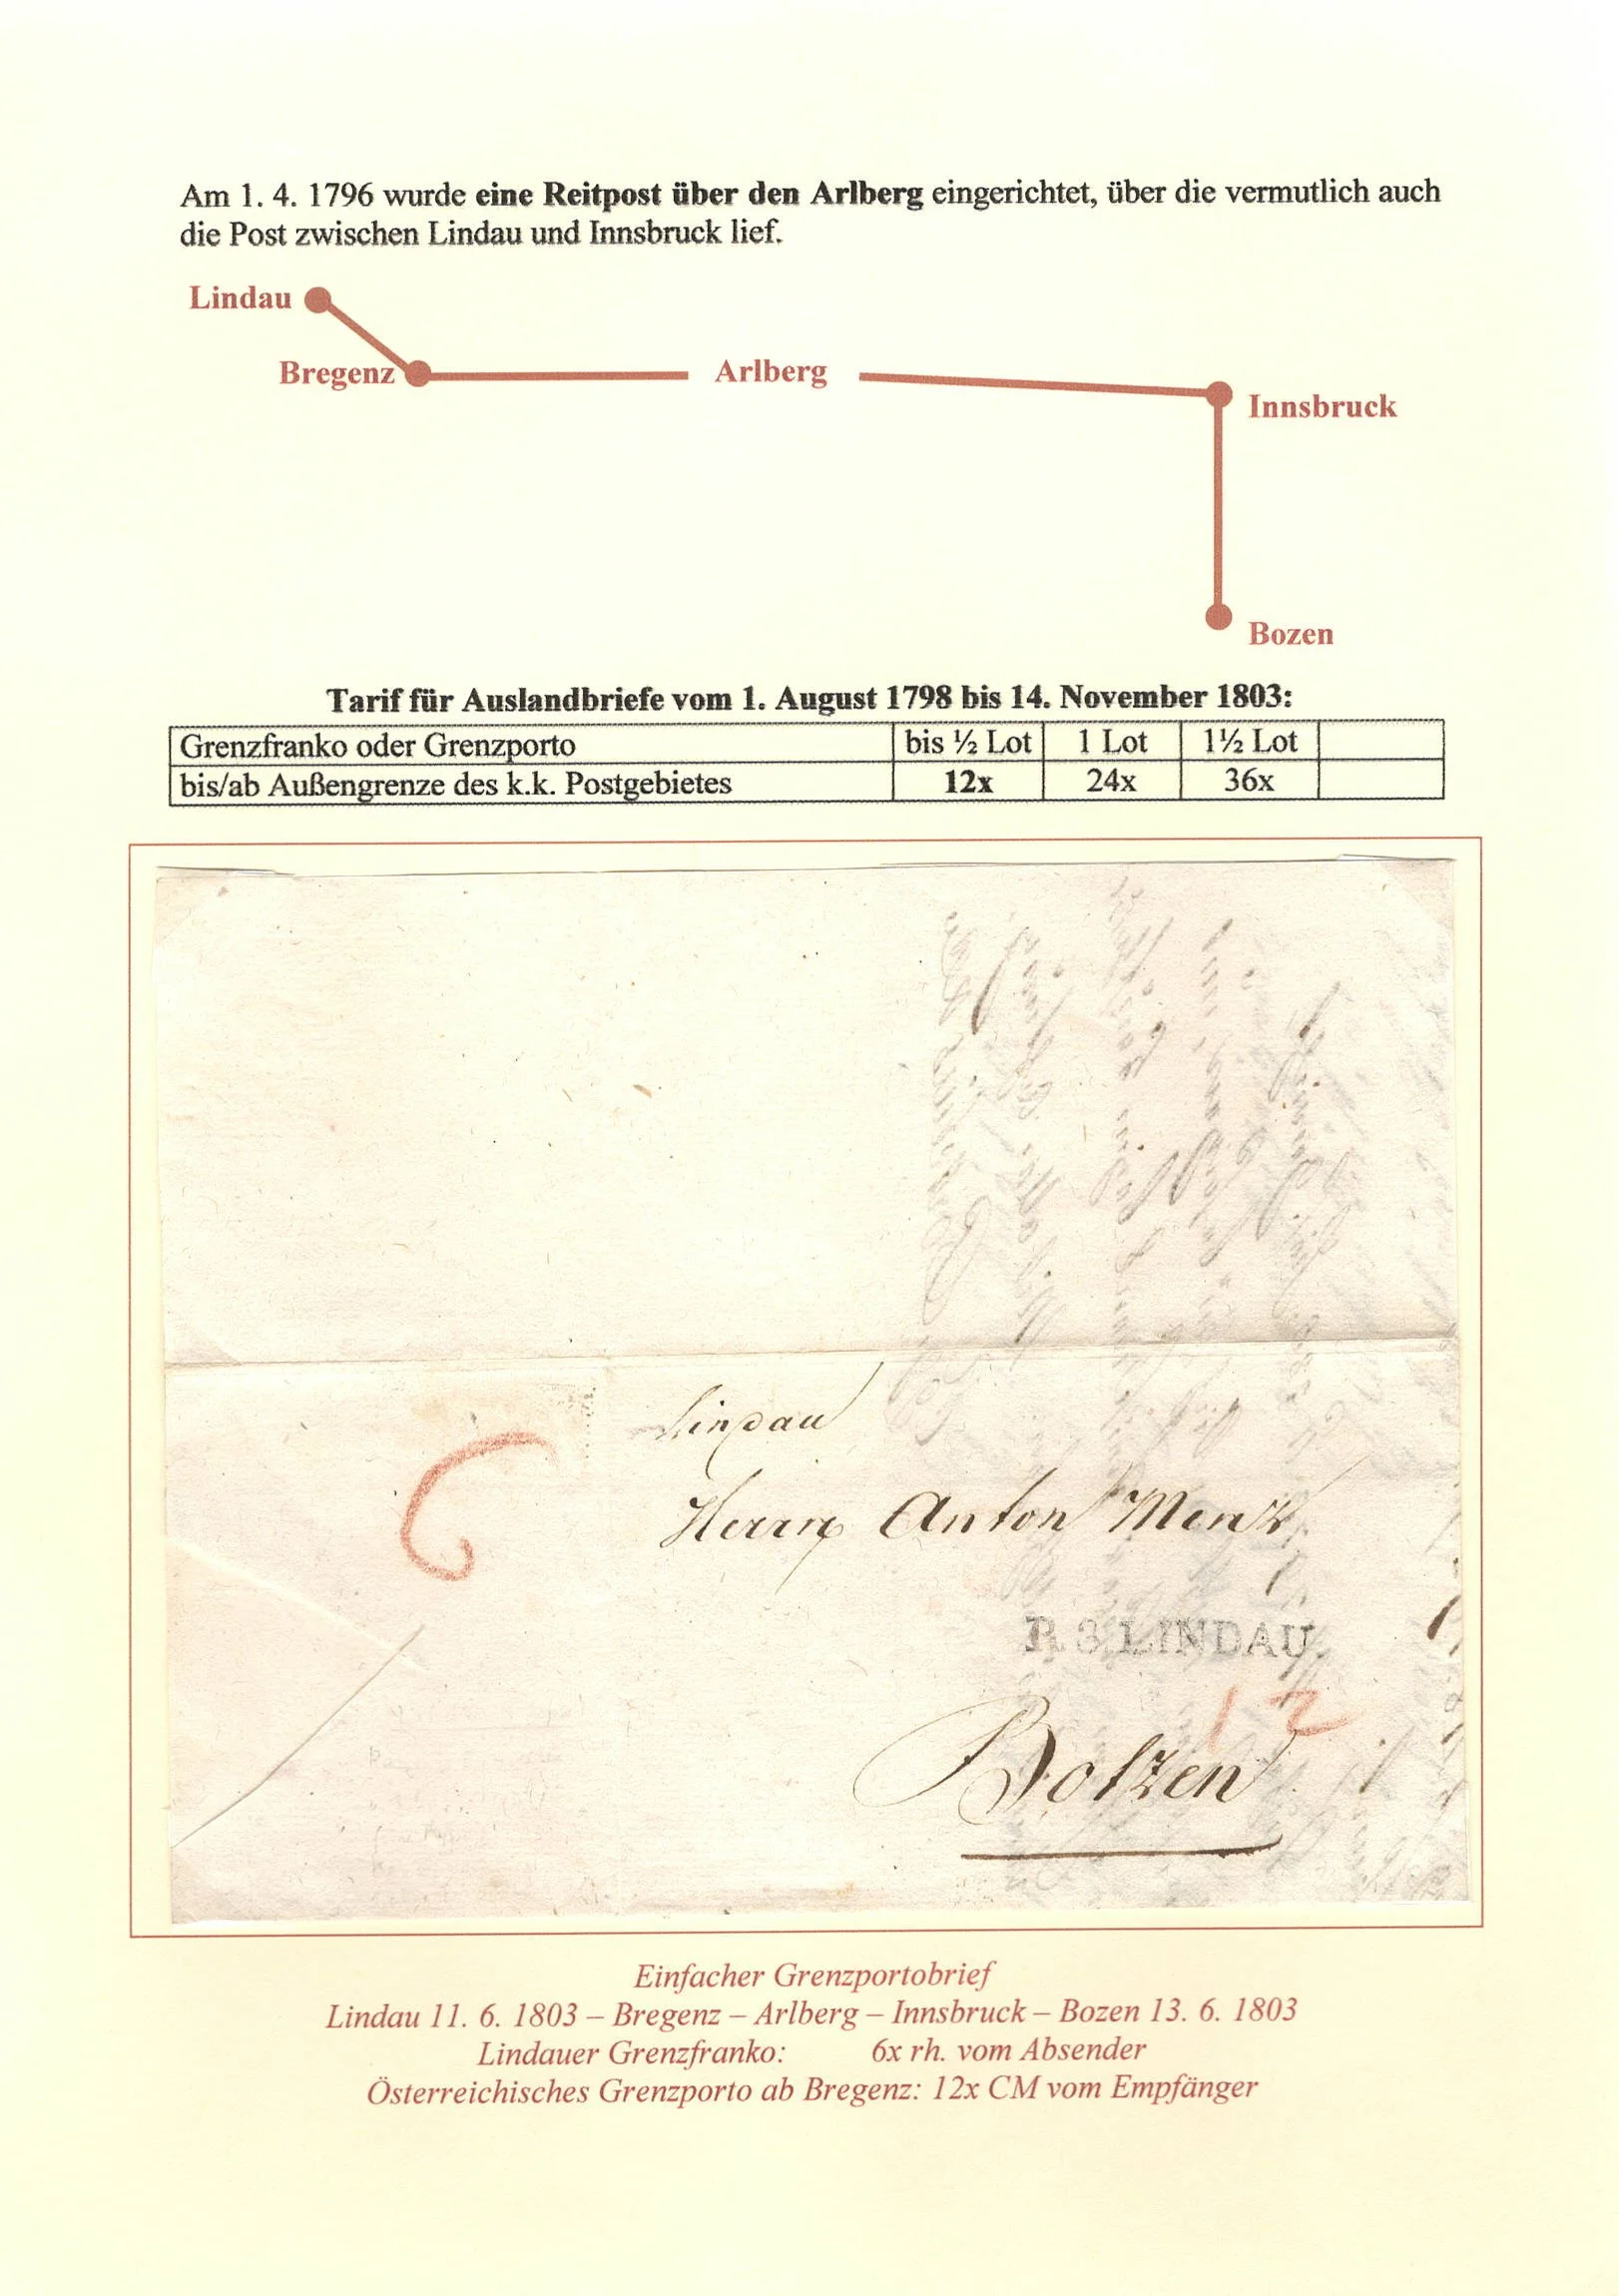 Am 1. 4. 1796 wurde eine Reitpost über den Arlberg eingerichtet, über die vermutlich auch
die Post zwischen Lindau und Innsbruck lief.
Lindau
Bregenz
Arlberg
Innsbruck
Bozen
Tarif für Auslandbriefe vom 1. August 1798 bis 14. November 1803:
Grenzfranko oder Grenzporto bis ½ Lot 1 Lot 1½ Lot
bis/ab Außengrenze des k.k. Postgebietes 12x 24x 36x
Lindau
6
Herrn Anton Menz
R. 3. LINDAU.
12
Botzen
Einfacher Grenzportobrief
Lindau 11. 6. 1803 – Bregenz – Arlberg – Innsbruck – Bozen 13. 6. 1803
Lindauer Grenzfranko: 6x rh. vom Absender
Österreichisches Grenzporto ab Bregenz: 12x CM vom Empfänger